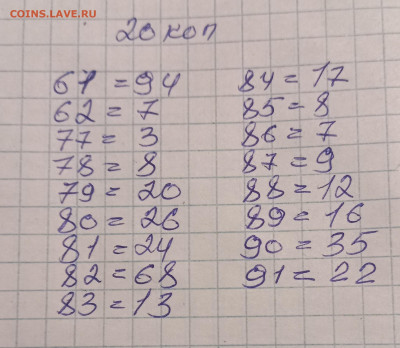 COINS.LAVE.RU
20 коп
61 = 94
62 = 7
77 = 3
78 = 8
79 = 20
80 = 26
81 = 24
82 = 68
83 = 13
84 = 17
85 = 8
86 = 7
87 = 9
88 = 12
89 = 16
90 = 35
91 = 22